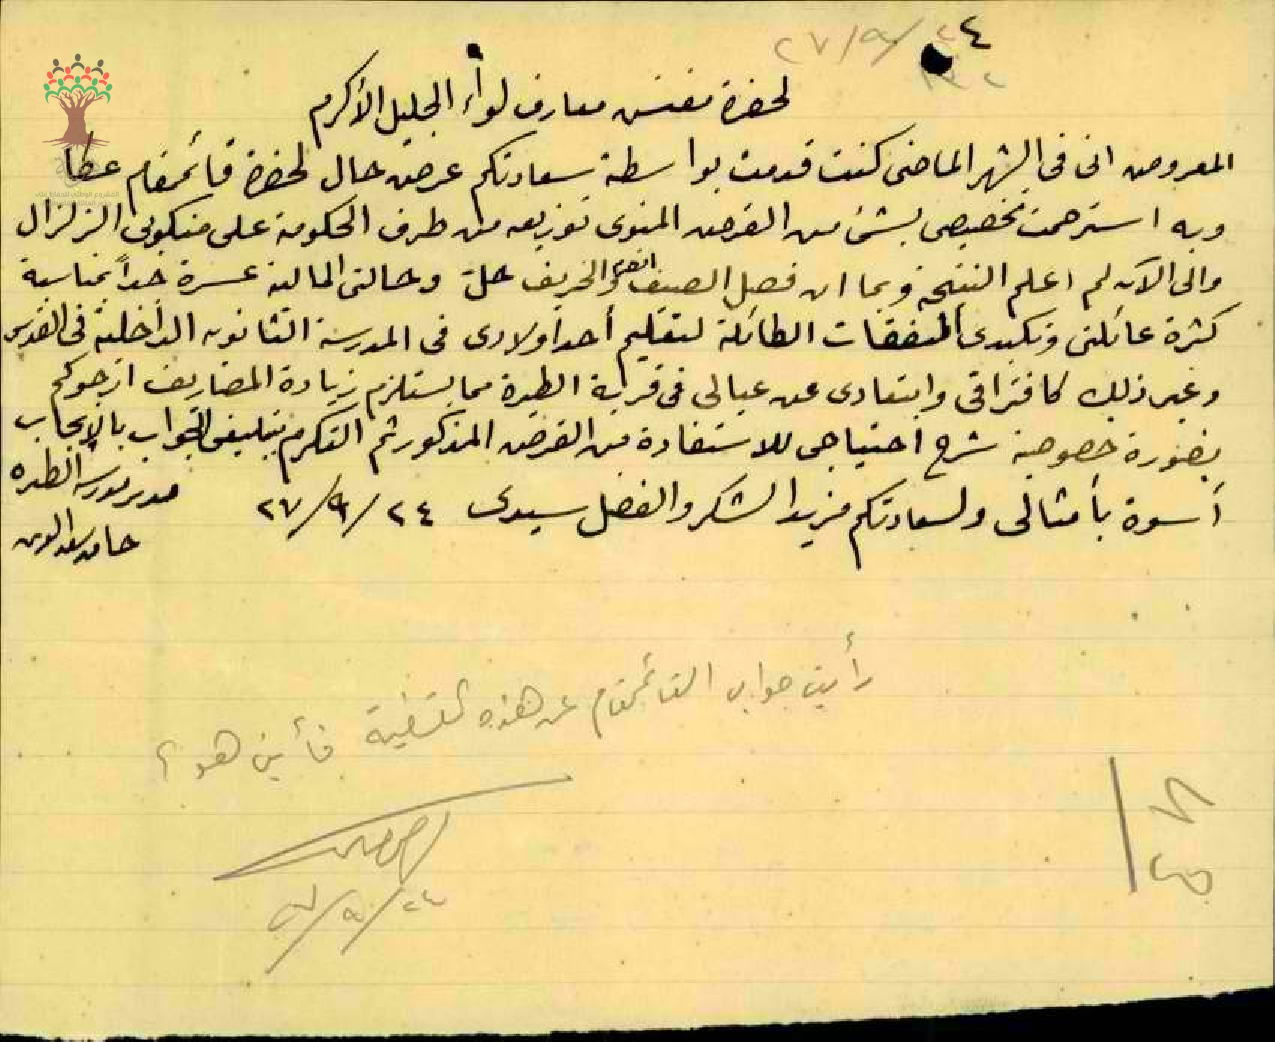 ٢٧/٩/٢٤
لحضرة مفتش معارف لواء الجليل الأكرم
المعروض انى فى الشهر الماضى كنت قدمت بواسطة سعادتكم عرض حال لحضرة قائمقام عكا
وبه استرحمت تخصيصى بشئ من القرض المنوى توزيعه من طرف الحكومة على منكوبى الزلزال
والى الآن لم اعلم النتيجة وبما ان فصل الصيف انقضى والخريف حل وحالتى المالية عسرة جداً بمناسبة
كثرة عائلتى وتكبدى النفقات الطائلة لتعليم أحد اولادى فى المدرسة الثانوية الداخلية فى القدس
وغير ذلك كافتراقى وابتعادى عن عيالى فى قرية الطيرة مما يستلزم زيادة المصاريف ارجوكم
بصورة خصوصية شرح احتياجى للاستفادة من القرض المذكور ثم التكرم بتبليغى الجواب بالايجاب
أسوة بأمثالى ولسعادتكم مزيد الشكر والفضل سيدى ٢٧/٩/٢٤
مدير مدرسة الطيره
رأيت جواب القائمقام عن هذه القضية فأين هو ؟
٢٧/٩/٢٤